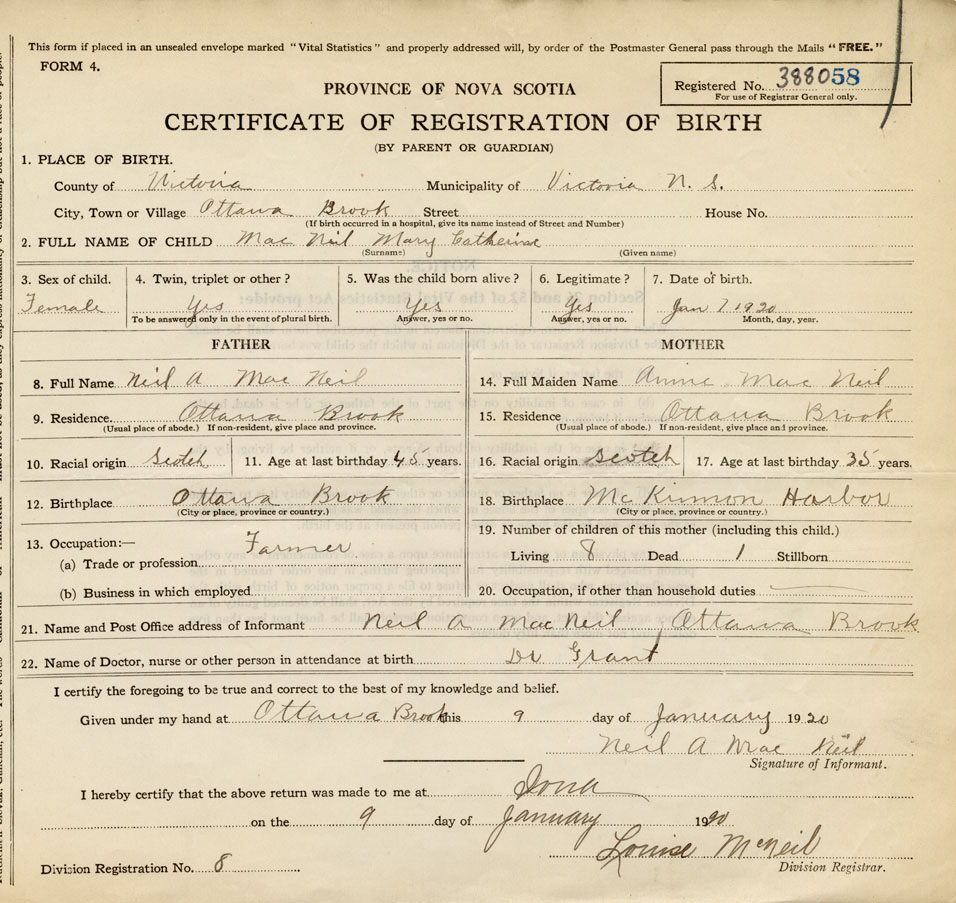 This form if placed in an unsealed envelope marked "Vital Statistics" and properly addressed will, by order of the Postmaster General pass through the Mails "FREE."
FORM 4.
Registered No. 388058
For use of Registrar General only.
PROVINCE OF NOVA SCOTIA
CERTIFICATE OF REGISTRATION OF BIRTH
(BY PARENT OR GUARDIAN)
1. PLACE OF BIRTH.
County of Victoria Municipality of Victoria N. S.
City, Town or Village Ottawa Brook Street House No.
(If birth occurred in a hospital, give its name instead of Street and Number)
2. FULL NAME OF CHILD Mac Neil Mary Catherine
(Surname) (Given name)
3. Sex of child. 4. Twin, triplet or other? 5. Was the child born alive? 6. Legitimate? 7. Date of birth.
Female Yes Yes Yes Jan 7 1920
To be answered only in the event of plural birth. Answer, yes or no. Answer, yes or no. Month, day, year.
FATHER MOTHER
8. Full Name Neil A Mac Neil 14. Full Maiden Name Annie Mac Neil
9. Residence. Ottawa Brook 15. Residence Ottawa Brook
(Usual place of abode.) If non-resident, give place and province. (Usual place of abode.) If non-resident, give place and province.
10. Racial origin Scotch 11. Age at last birthday 45 years. 16. Racial origin Scotch 17. Age at last birthday 35 years.
12. Birthplace Ottawa Brook 18. Birthplace McKinnon Harbor
(City or place, province or country.) (City or place, province or country.)
13. Occupation:— Farmer 19. Number of children of this mother (including this child.)
(a) Trade or profession Living 8 Dead 1 Stillborn
(b) Business in which employed 20. Occupation, if other than household duties
21. Name and Post Office address of Informant Neil A Mac Neil, Ottawa Brook
22. Name of Doctor, nurse or other person in attendance at birth Dr Grant
I certify the foregoing to be true and correct to the best of my knowledge and belief.
Given under my hand at Ottawa Brook this 9 day of January 1920
Neil A Mac Neil
Signature of Informant.
I hereby certify that the above return was made to me at Iona
on the 9 day of January 1920
Louise McNeil
Division Registration No. 8 Division Registrar.